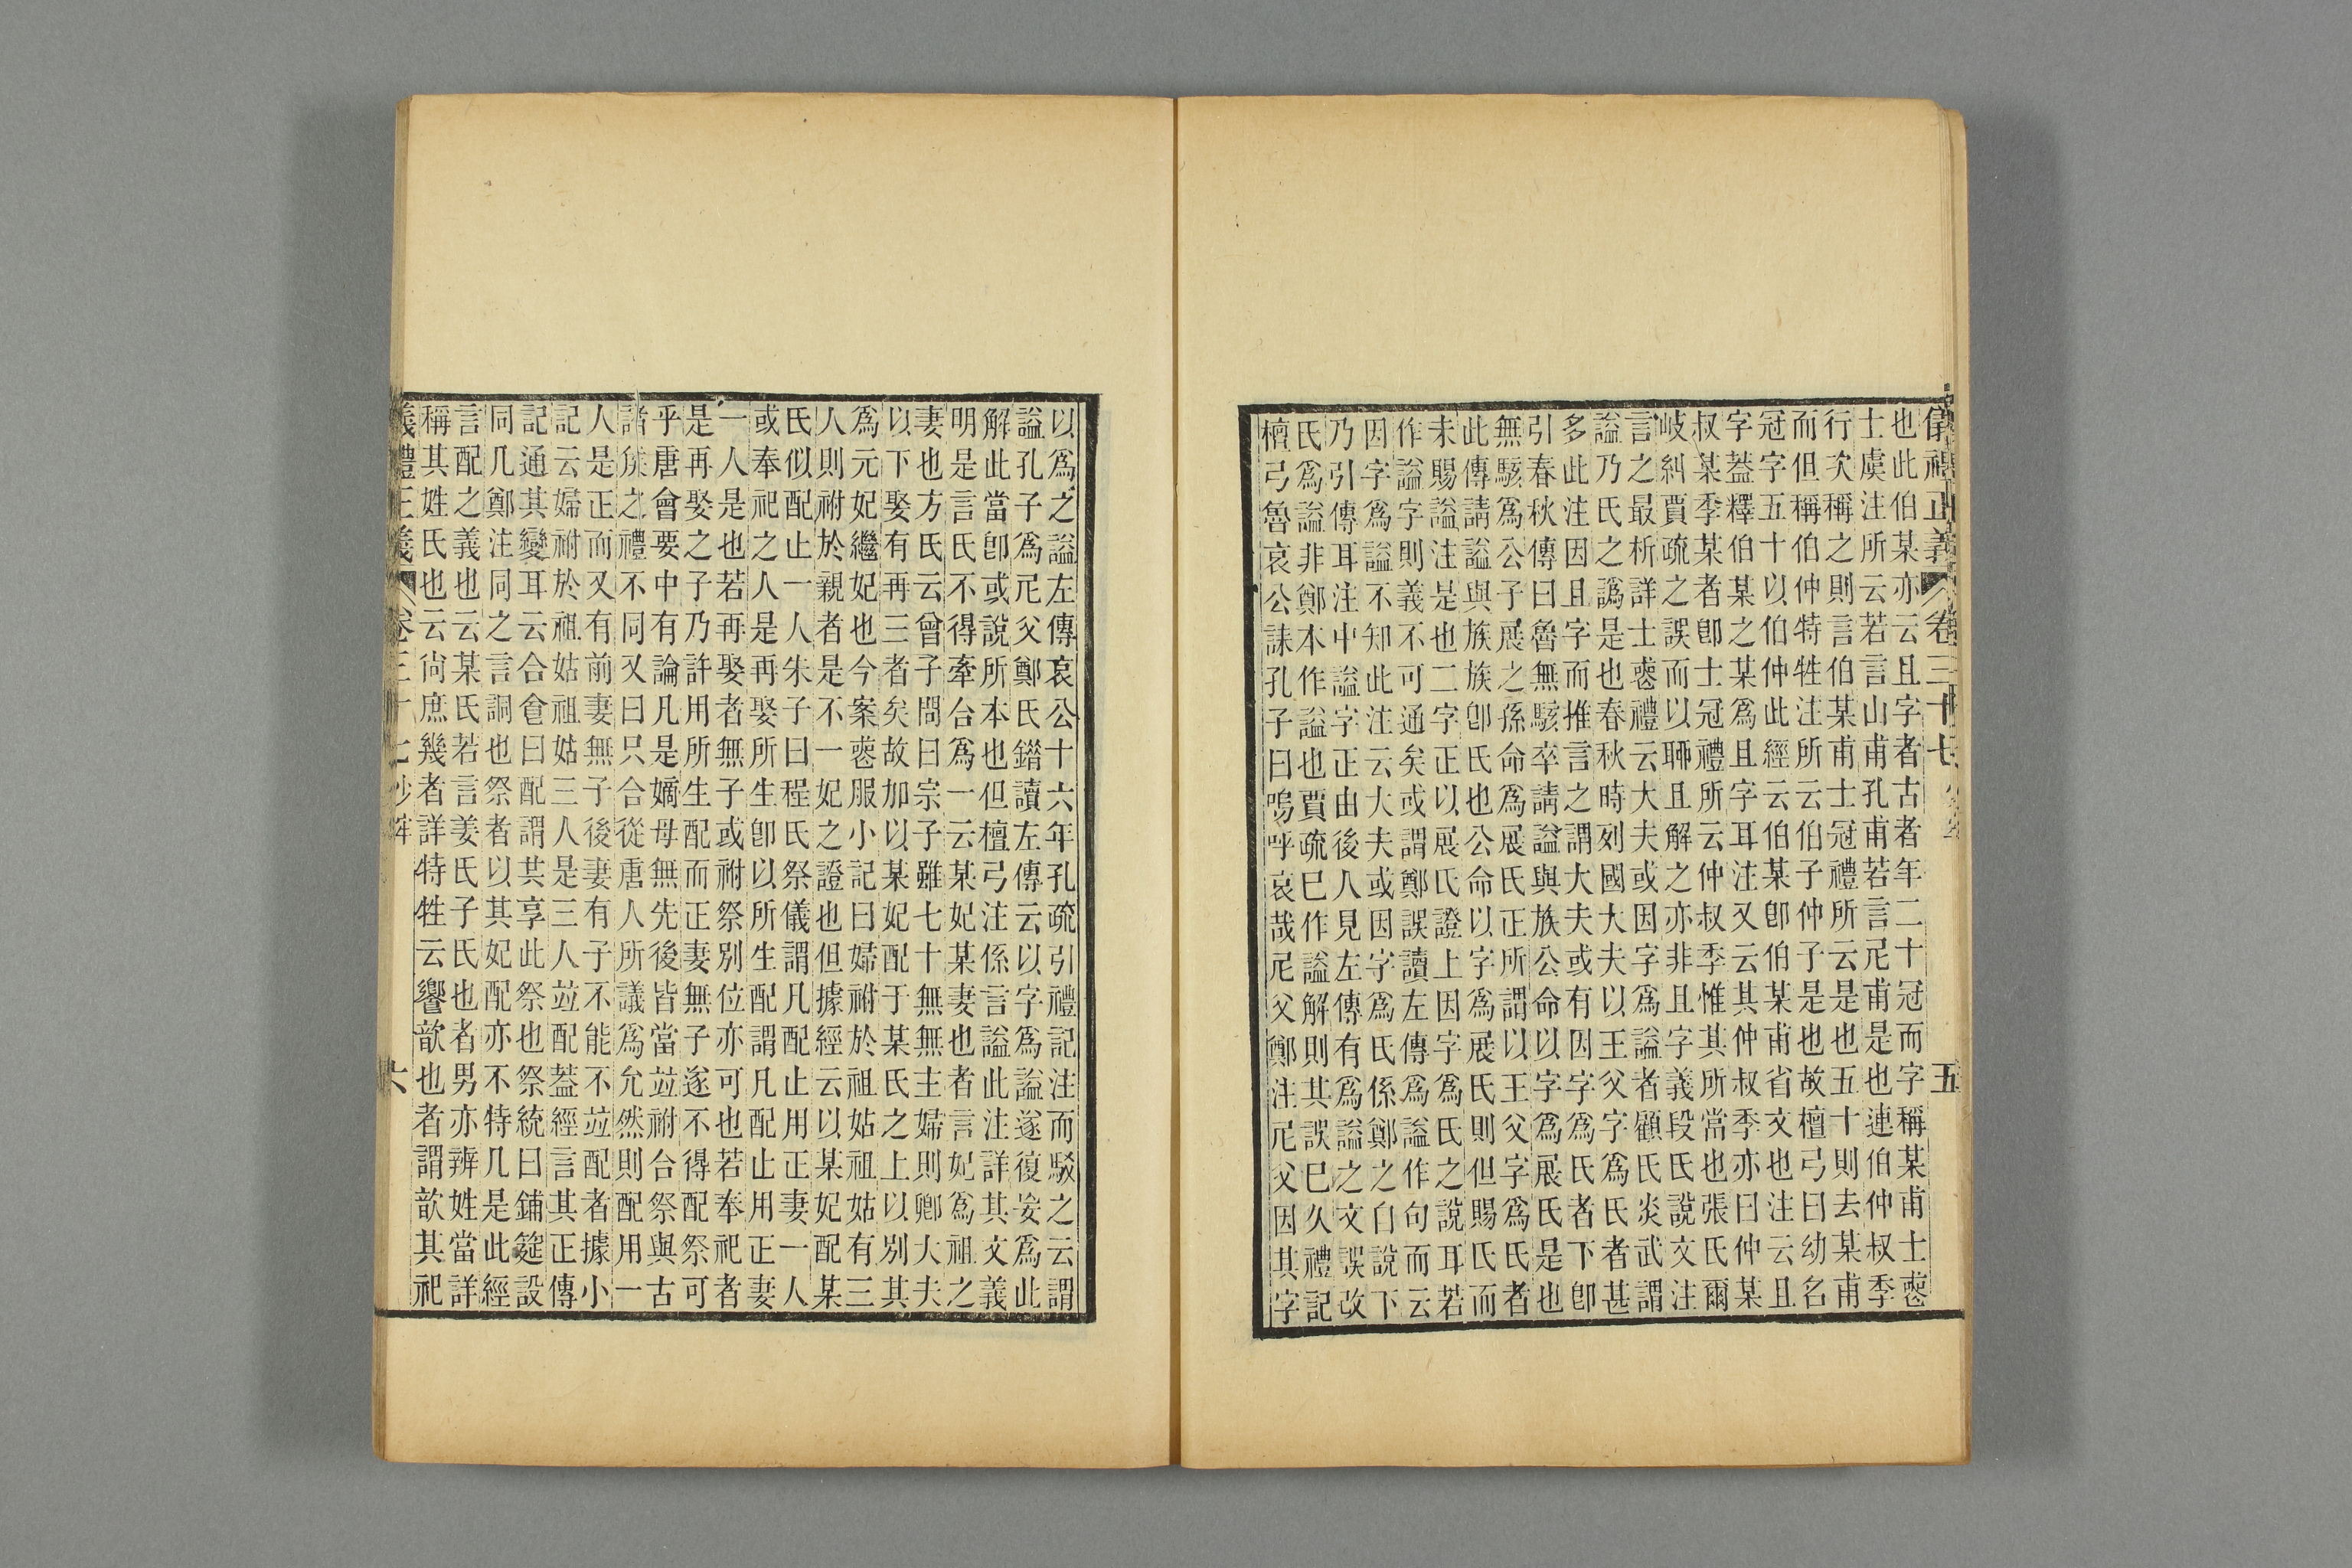 儀禮正義 卷三十七 五
也此伯某亦云且字者古者年二十冠而字稱某甫士喪
士虞注所云若言山甫孔甫若言尼甫是也連伯仲叔季
行次稱之則言伯某甫士冠禮所云是也五十則去某甫
而但稱伯仲特牲注所云伯子仲子是也故檀弓曰幼名
冠字五十以伯仲此經云伯某卽伯某甫省文也注云且
字葢釋伯某之某爲且字耳注又云其仲叔季亦曰仲某
叔某季某者卽士冠禮所云仲叔季惟其所當也張氏爾
岐糾賈疏之誤而以聃且解之亦非且字義段氏說文注
言之最析詳士喪禮云大夫或因字爲謚者顧氏炎武謂
謚乃氏之譌是也春秋時列國大夫以王父字爲氏者甚
多此注因且字而推言之謂大夫或有因字爲氏者下卽
引春秋傳曰魯無駭卒請謚與族公命以字爲展氏是也
無駭爲公子展之孫命爲展氏正所謂以王父字爲氏者
此傳請謚與族族卽氏也公命以字爲展氏則但賜氏而
未賜謚注是也二字正以展氏證上因字爲氏之說耳若
作謚字則義不可通矣或謂鄭誤讀左傳爲謚作句而云
因字爲謚不知此注云大夫或因字爲氏係鄭之自說下
乃引傳耳注中謚字正由後人見左傳有爲謚之文誤改
氏爲謚非鄭本作謚也賈疏巳作謚解則其誤巳久禮記
檀弓魯哀公誄孔子曰嗚呼哀哉尼父鄭注尼父因其字
以爲之謚左傳哀公十六年孔疏引禮記注而駮之云謂
謚孔子爲尼父鄭氏錯讀左傳云以字爲謚遂復妄爲此
解此當卽或說所本也但檀弓注係言謚此注詳其文義
明是言氏不得牽合爲一云某妃某妻也者言妃爲祖之
妻也方氏云曾子問曰宗子雖七十無無主婦則卿大夫
以下娶有再三者矣故加以某妃配于某氏之上以別其
爲元妃繼妃也今案喪服小記曰婦祔於祖姑祖姑有三
人則祔於親者是不一妃之證也但據經云以某妃配某
氏似配止一人朱子曰程氏祭儀謂凡配止用正妻一人
或奉祀之人是再娶所生卽以所生配謂凡配止用正妻
一人是也若再娶者無子或祔祭別位亦可也若奉祀者
是再娶之子乃許用所生配而正妻無子遂不得配祭可
乎唐會要中有論凡是嫡母無先後皆當竝祔合祭與古
諸矦之禮不同又曰只合從唐人所議爲允然則配用一
人是正而又有前妻無子後妻有子不能不竝配者據小
記云婦祔於祖姑祖姑三人是三人竝配葢經言其正傳
記通其變耳云合會曰配謂共享此祭也祭統曰鋪筵設
同几鄭注同之言詷也祭者以其妃配亦不特几是此經
言配之義也云某氏若言姜氏子氏也者男亦辨姓當詳
稱其姓氏也云尙庶幾者詳特牲云饗歆也者謂歆其祀